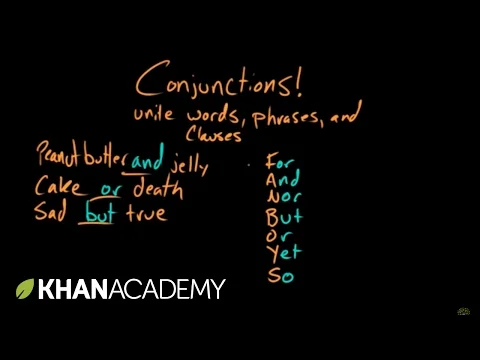 Conjunctions!
unite words, phrases, and
Clauses
Peanut butter and jelly
Cake or death
Sad but true
For
And
Nor
But
Or
Yet
So
KHANACADEMY